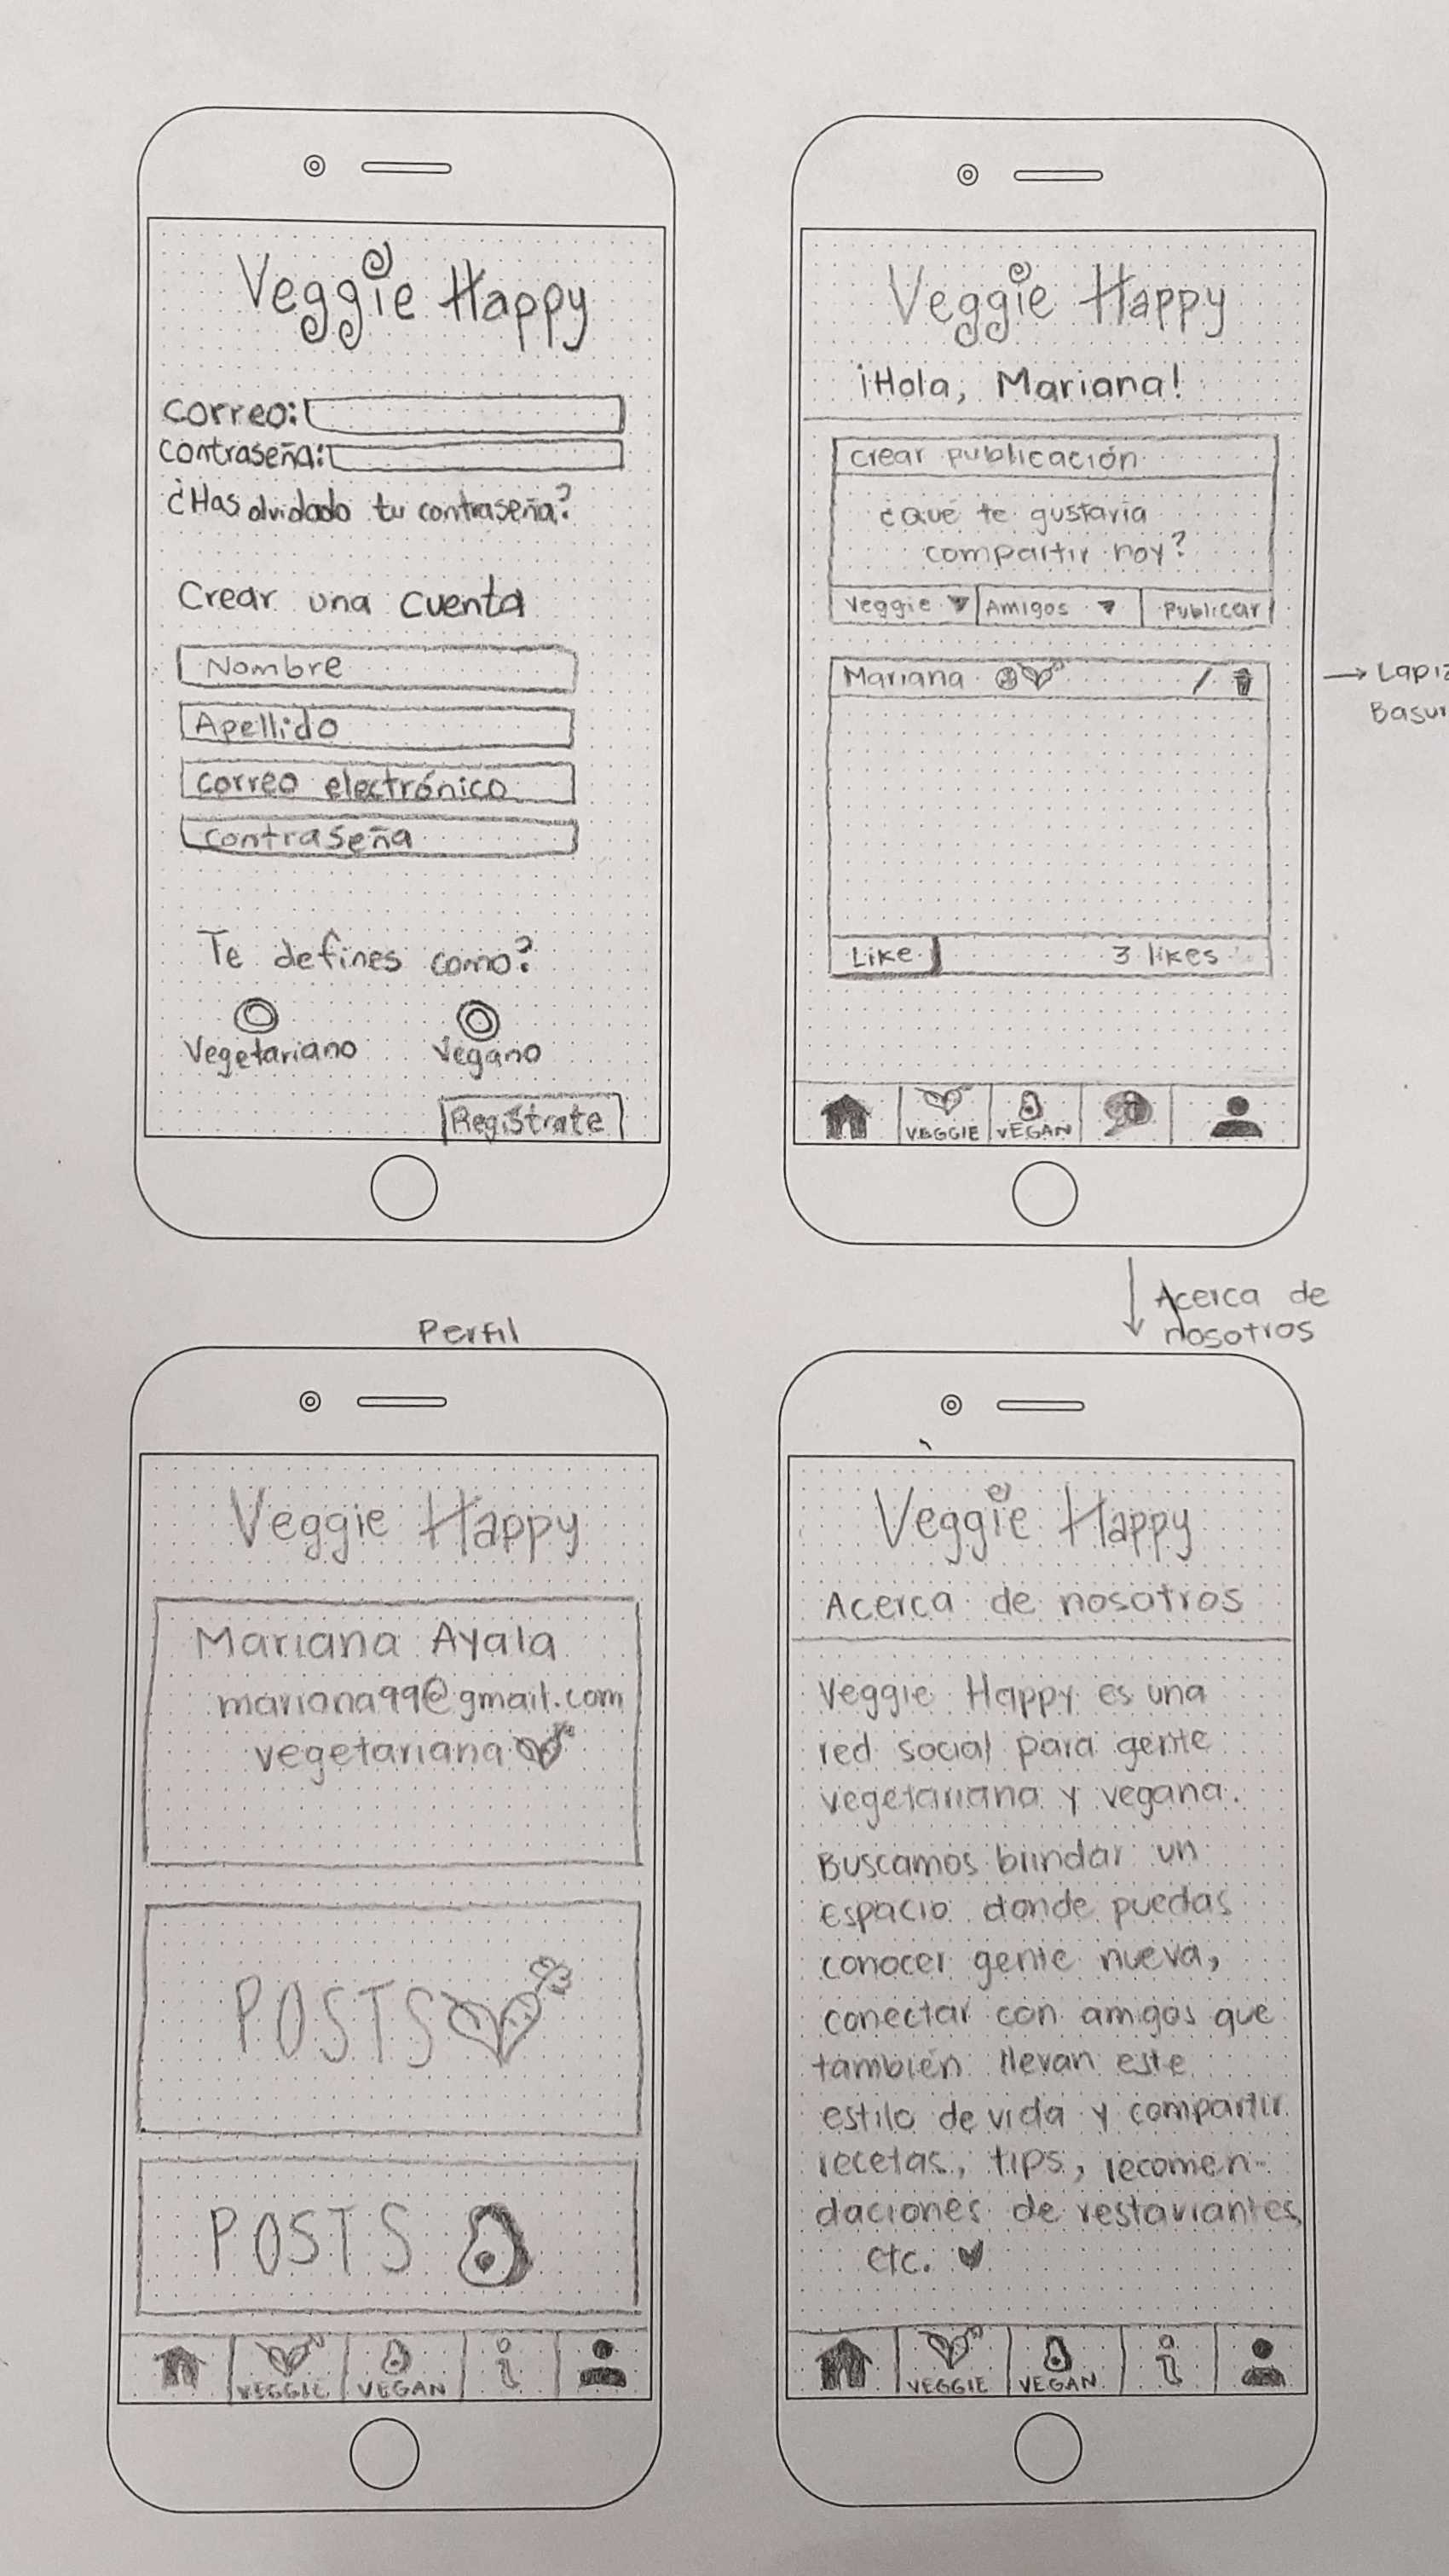 Veggie Happy
Correo:
Contraseña:
¿Has olvidado tu contraseña?
Crear una cuenta
Nombre
Apellido
correo electrónico
contraseña
Te defines como?
Vegetariano Vegano
Regístrate
Veggie Happy
¡Hola, Mariana!
crear publicación
¿Qué te gustaría
compartir hoy?
Veggie Amigos Publicar
Mariana
→ Lapiz
Basur
Like 3 likes
VEGGIE VEGAN
Acerca de
nosotros
Perfil
Veggie Happy
Mariana Ayala
mariana99@gmail.com
vegetariana
POSTS
POSTS
VEGGIE VEGAN i
Veggie Happy
Acerca de nosotros
Veggie Happy es una
red social para gente
vegetariana y vegana.
Buscamos brindar un
espacio donde puedas
conocer gente nueva,
conectar con amigos que
también llevan este
estilo de vida y compartir
recetas, tips, recomen-
daciones de restaurantes,
etc.
VEGGIE VEGAN i